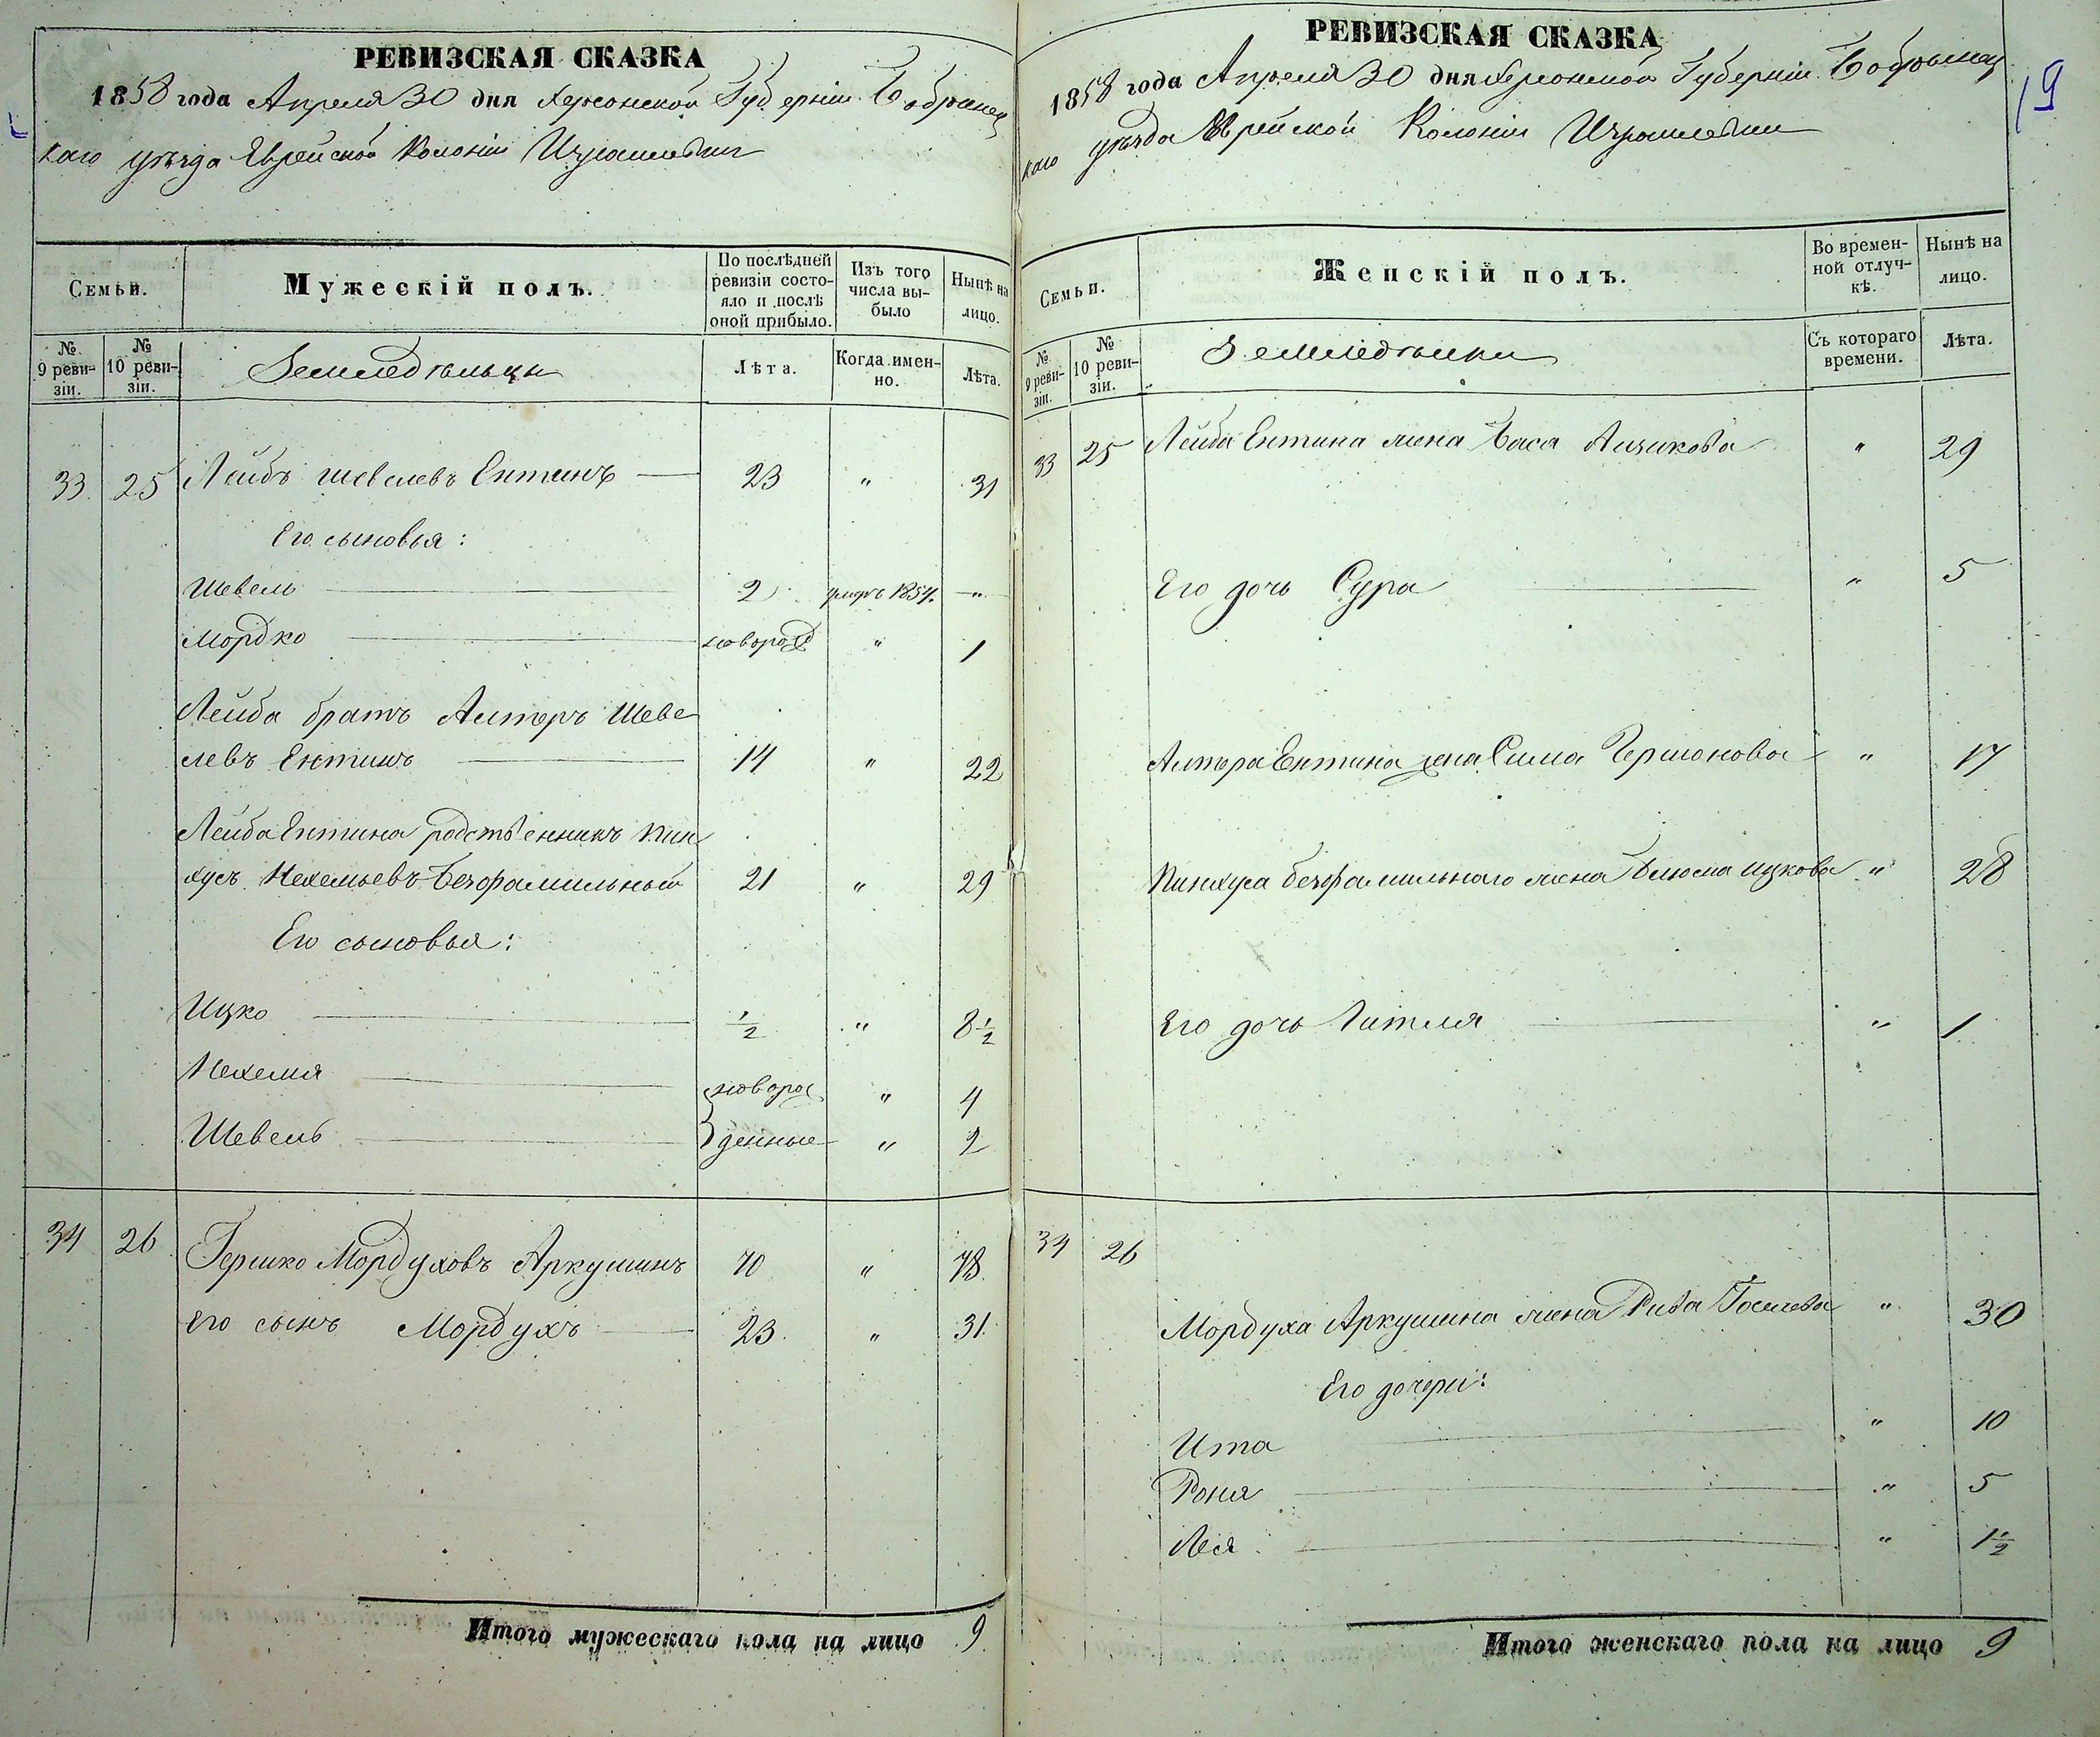 РЕВИЗСКАЯ СКАЗКА
1858 года Апреля 30 дня Херсонской Губерніи Бобринец
каго уѣзда Еврейской Колоніи Израилевки
Семьи.
Мужескій полъ.
По послѣдней ревизіи состояло и послѣ оной прибыло.
Изъ того числа выбыло
Нынѣ на лицо.
№ 9 ревизіи.
№ 10 ревизіи.
Земледѣльцы
Лѣта.
Когда именно.
Лѣта.
33 25 Лейбъ Шевелевъ Ентинъ 23 " 31
Его сыновья:
Шевель 2 умеръ 1854. "
Мордко новорожд " 1
Лейба братъ Алтеръ Шеве
левъ Ентинъ 14 " 22
Лейба Ентина родственникъ Пин
хусъ Нехемьевъ Безфамильный 21 " 29
Его сыновья:
Ицко 1/2 " 8 1/2
Нехемия новорож " 4
Шевель денные " 2
34 26 Гершко Мордуховъ Аркушинъ 70 " 78
Его сынъ Мордухъ 23 " 31
Итого мужескаго пола на лицо 9
РЕВИЗСКАЯ СКАЗКА
19
1858 года Апреля 30 дня Херсонской Губерніи Бобринец
каго уѣзда Еврейской Колоніи Израилевки
Семьи.
Женскій полъ.
Во временной отлучкѣ.
Нынѣ на лицо.
№ 9 ревизіи.
№ 10 ревизіи.
Земледѣлки
Съ котораго времени.
Лѣта.
33 25 Лейба Ентина жена Бася Айзикова " 29
Его дочь Сура " 5
Алтера Ентина жена Сима Гершонова " 17
Пинхуса безфамильнаго жена Блюма Ицкова " 28
Его дочь Гителя " 1
34 26
Мордуха Аркушина жена Рива Іоселева " 30
Его дочери:
Ита " 10
Роня " 5
Лея " 1 1/2
Итого женскаго пола на лицо 9